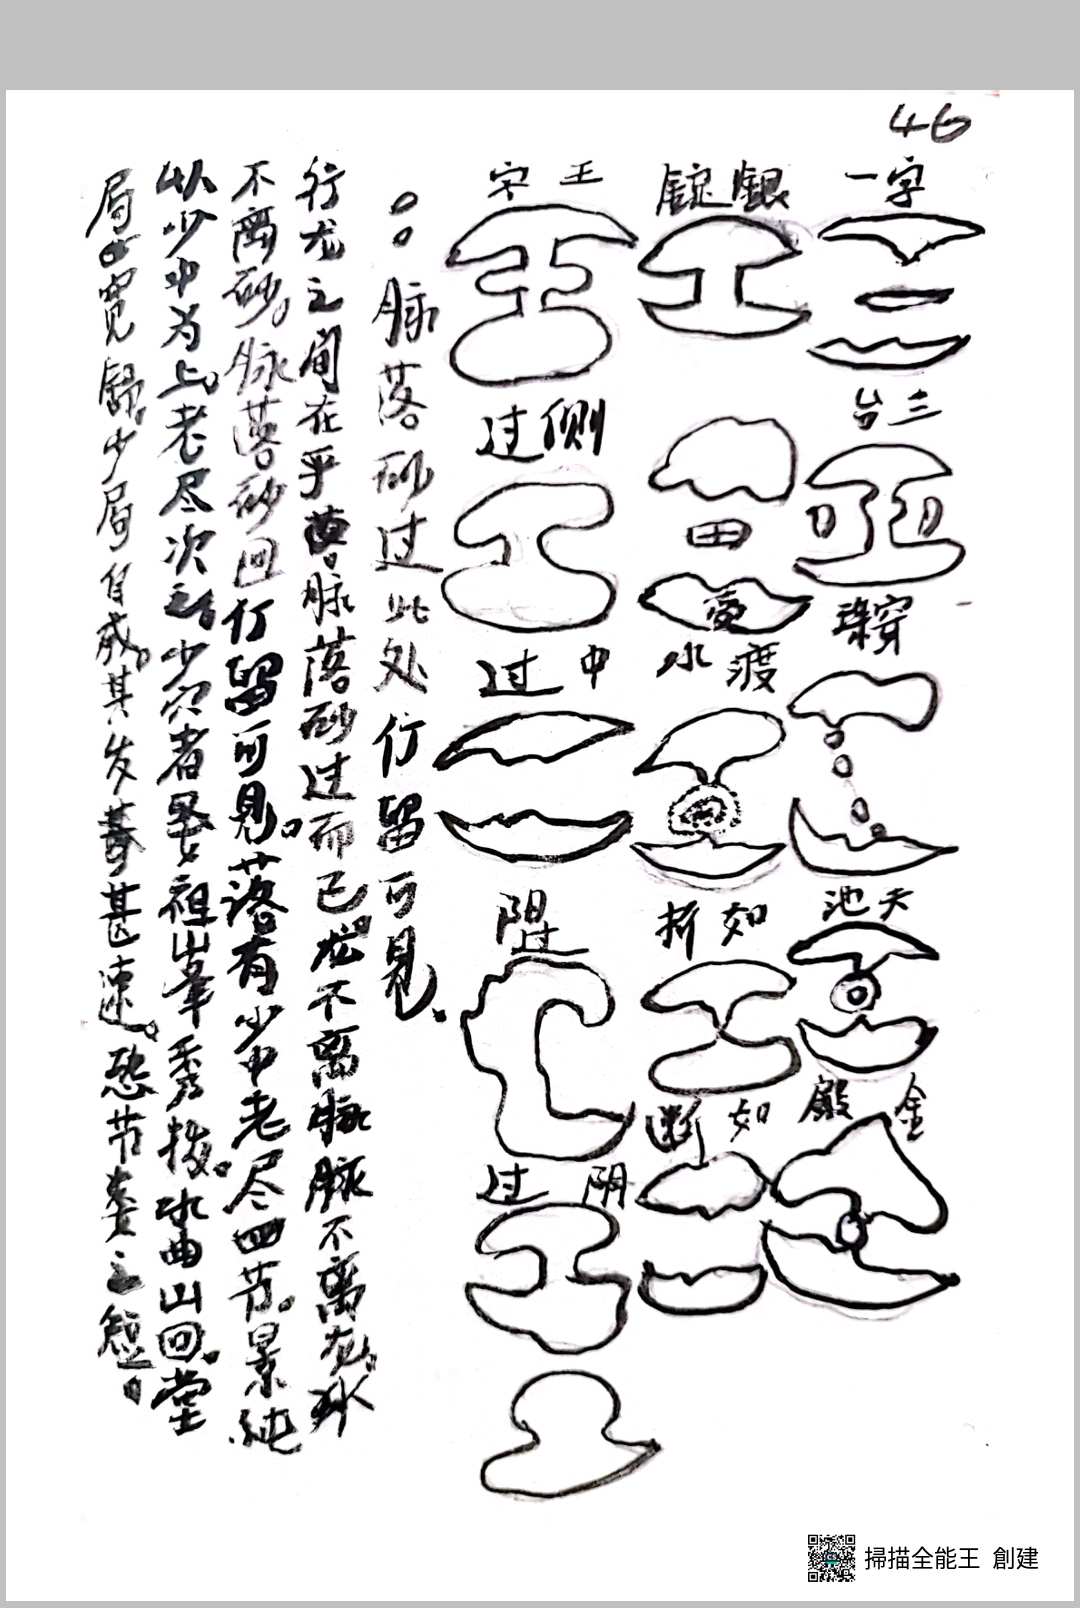 46
一字
三台
穿珠
天池
金殿
银锭
田
渡水
如折
如断
王字
侧过
中过
过
阴过
脉落砂过此处行留可見
行龙之间在乎落脉落砂过而已龙不离脉脉不离龙脉
不离砂脉落砂回行留可見落有少中老尽四节景纯
以少中为上老尽次之少穴者祖山峯秀拔水曲山回堂
局宽舒少局自成其发甚速恐节奏之短
掃描全能王 創建